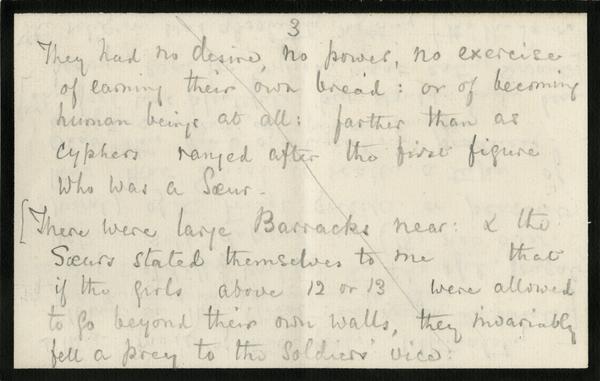 3
They had no desire, no power, no exercise
of earning their own bread: or of becoming
human beings at all: farther than as
cyphers ranged after the first figure
who was a Sœur.
[There were large Barracks near: & the
Sœurs stated themselves to me that
if the girls above 12 or 13 were allowed
to go beyond their own walls, they invariably
fell a prey to the soldiers' vice: